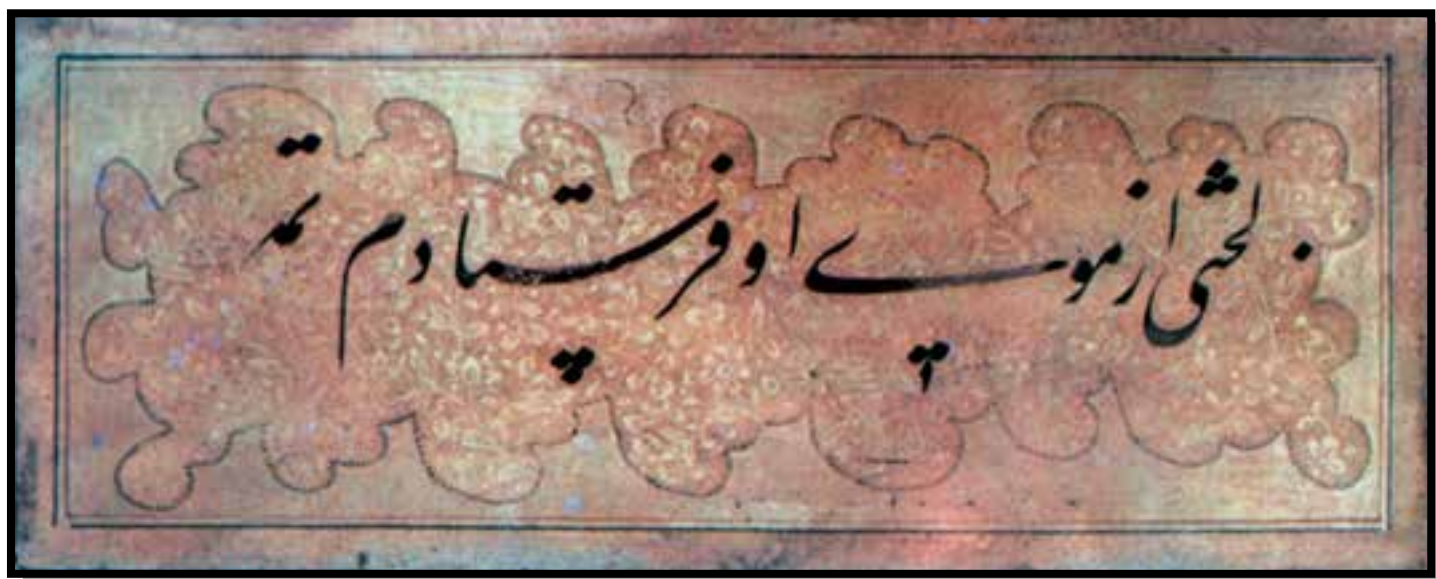 لختی از موے او فرستادم